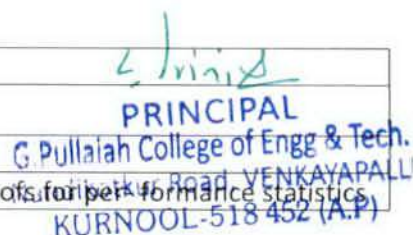 PRINCIPAL
G.Pullaiah College of Engg & Tech.
Road, VENKAYAPALLI
ofs for per- formance statistics
KURNOOL-518 452 (A.P)